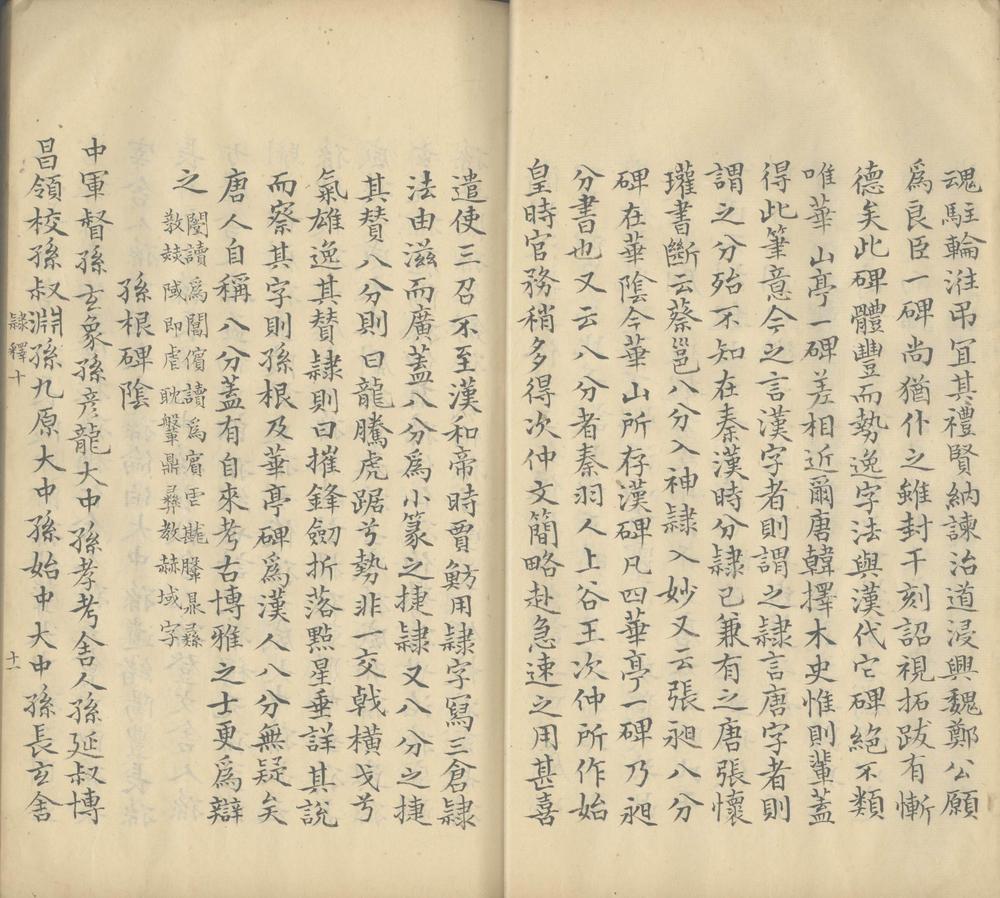 魂駐輪洼吊宜其禮賢納諫治道浸興魏鄭公願
爲良臣一碑尚猶仆之雖封干刻詔視拓跋有慚
德矣此碑體豐而勢逸字法與漢代它碑絕不類
唯華山亭一碑差相近爾唐韓擇木史惟則輩蓋
得此筆意今之言漢字者則謂之隸言唐字者則
謂之分殆不知在秦漢時分隸已兼有之唐張懷
瓘書斷云蔡邕八分入神隸入妙又云張昶八分
碑在華陰今華山所存漢碑凡四華亭一碑乃昶
分書也又云八分者秦羽人上谷王次仲所作始
皇時官務稍多得次仲文簡略赴急速之用甚喜
遣使三召不至漢和帝時賈魴用隸字寫三倉隸
法由滋而廣蓋八分爲小篆之捷隸又八分之捷
其贊八分則曰龍騰虎踞兮勢非一交戟橫戈兮
氣雄逸其贊隸則曰摧鋒劒折落點星垂詳其說
而察其字則孫根及華亭碑爲漢人八分無疑矣
唐人自稱八分蓋有自來考古博雅之士更爲辯
之
闅讀爲閽儐讀爲賓雲
敎䓇䧕即虐耽鞶鼎彝教赫域字
孫根碑陰
中軍督孫玄象孫彥龍大中孫孝考舍人孫延叔博
昌領校孫叔淵孫九原大中孫始中大中孫長玄舍
隸釋十
十一